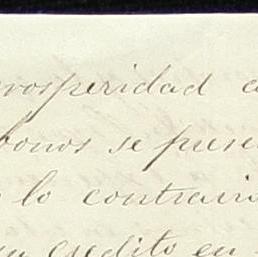 prosperidad
bonos se presen
lo contrario
un credito en